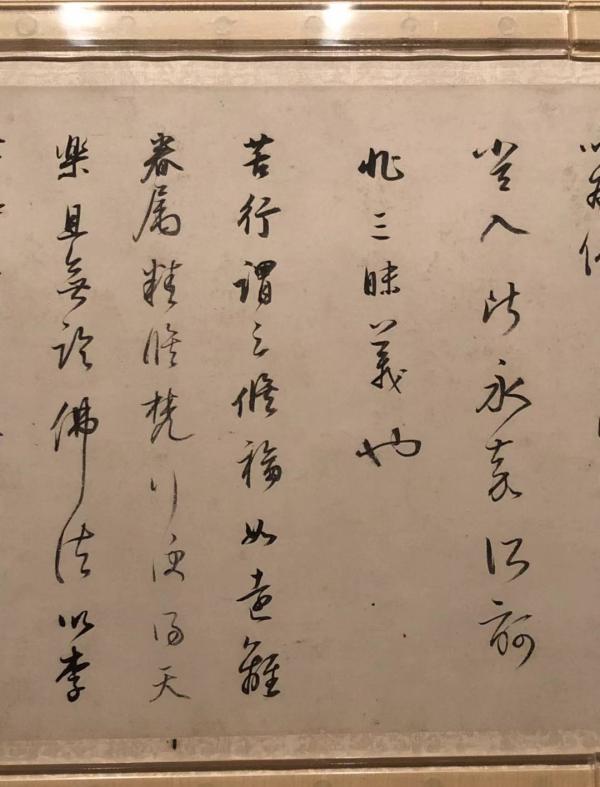 入此永嘉所訶
非三昧義也
苦行謂之脩福如遠離
眷属精脩梵行便得天
樂且無論佛法以李